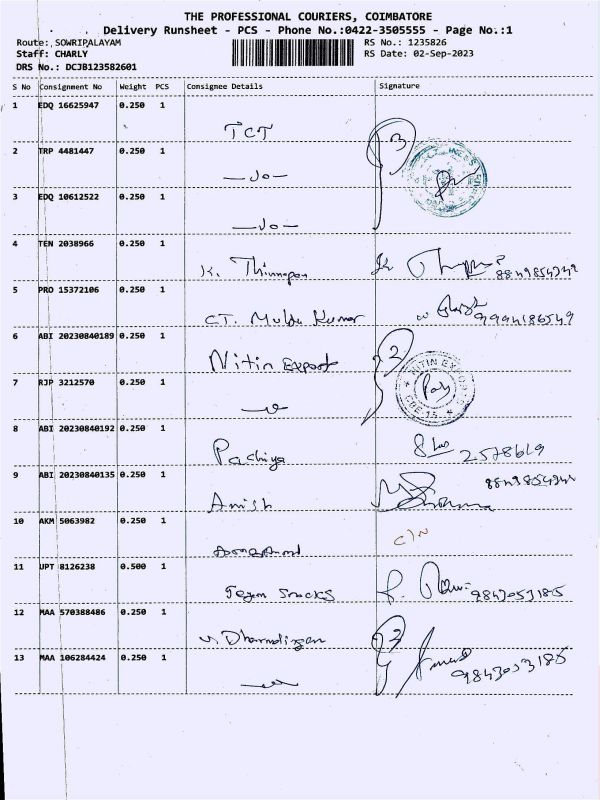 THE PROFESSIONAL COURIERS, COIMBATORE
Delivery Runsheet - PCS - Phone No.:0422-3505555 - Page No.:1
Route: SOWRIPALAYAM RS No.: 1235826
Staff: CHARLY RS Date: 02-Sep-2023
DRS No.: DCJB123582601
S No Consignment No Weight PCS Consignee Details Signature
1 EDQ 16625947 0.250 1 TCT
2 TRP 4481447 0.250 1 3
3 EDQ 10612522 0.250 1
4 TEN 2038966 0.250 1 K.
5 PRO 15372106 0.250 1 C.T. Kumar 9994186549
6 ABI 20230840189 0.250 1 Nitin Export 2
7 RJP 3212570 0.250 1 NITIN EXPORT
8 ABI 20230840192 0.250 1 Pachiya 2578619
9 ABI 20230840135 0.250 1 Amish
10 AKM 5063982 0.250 1 C/N
11 UPT 8126238 0.500 1 Snacks 9843053185
12 MAA 570388486 0.250 1 2
13 MAA 106284424 0.250 1 9843053185